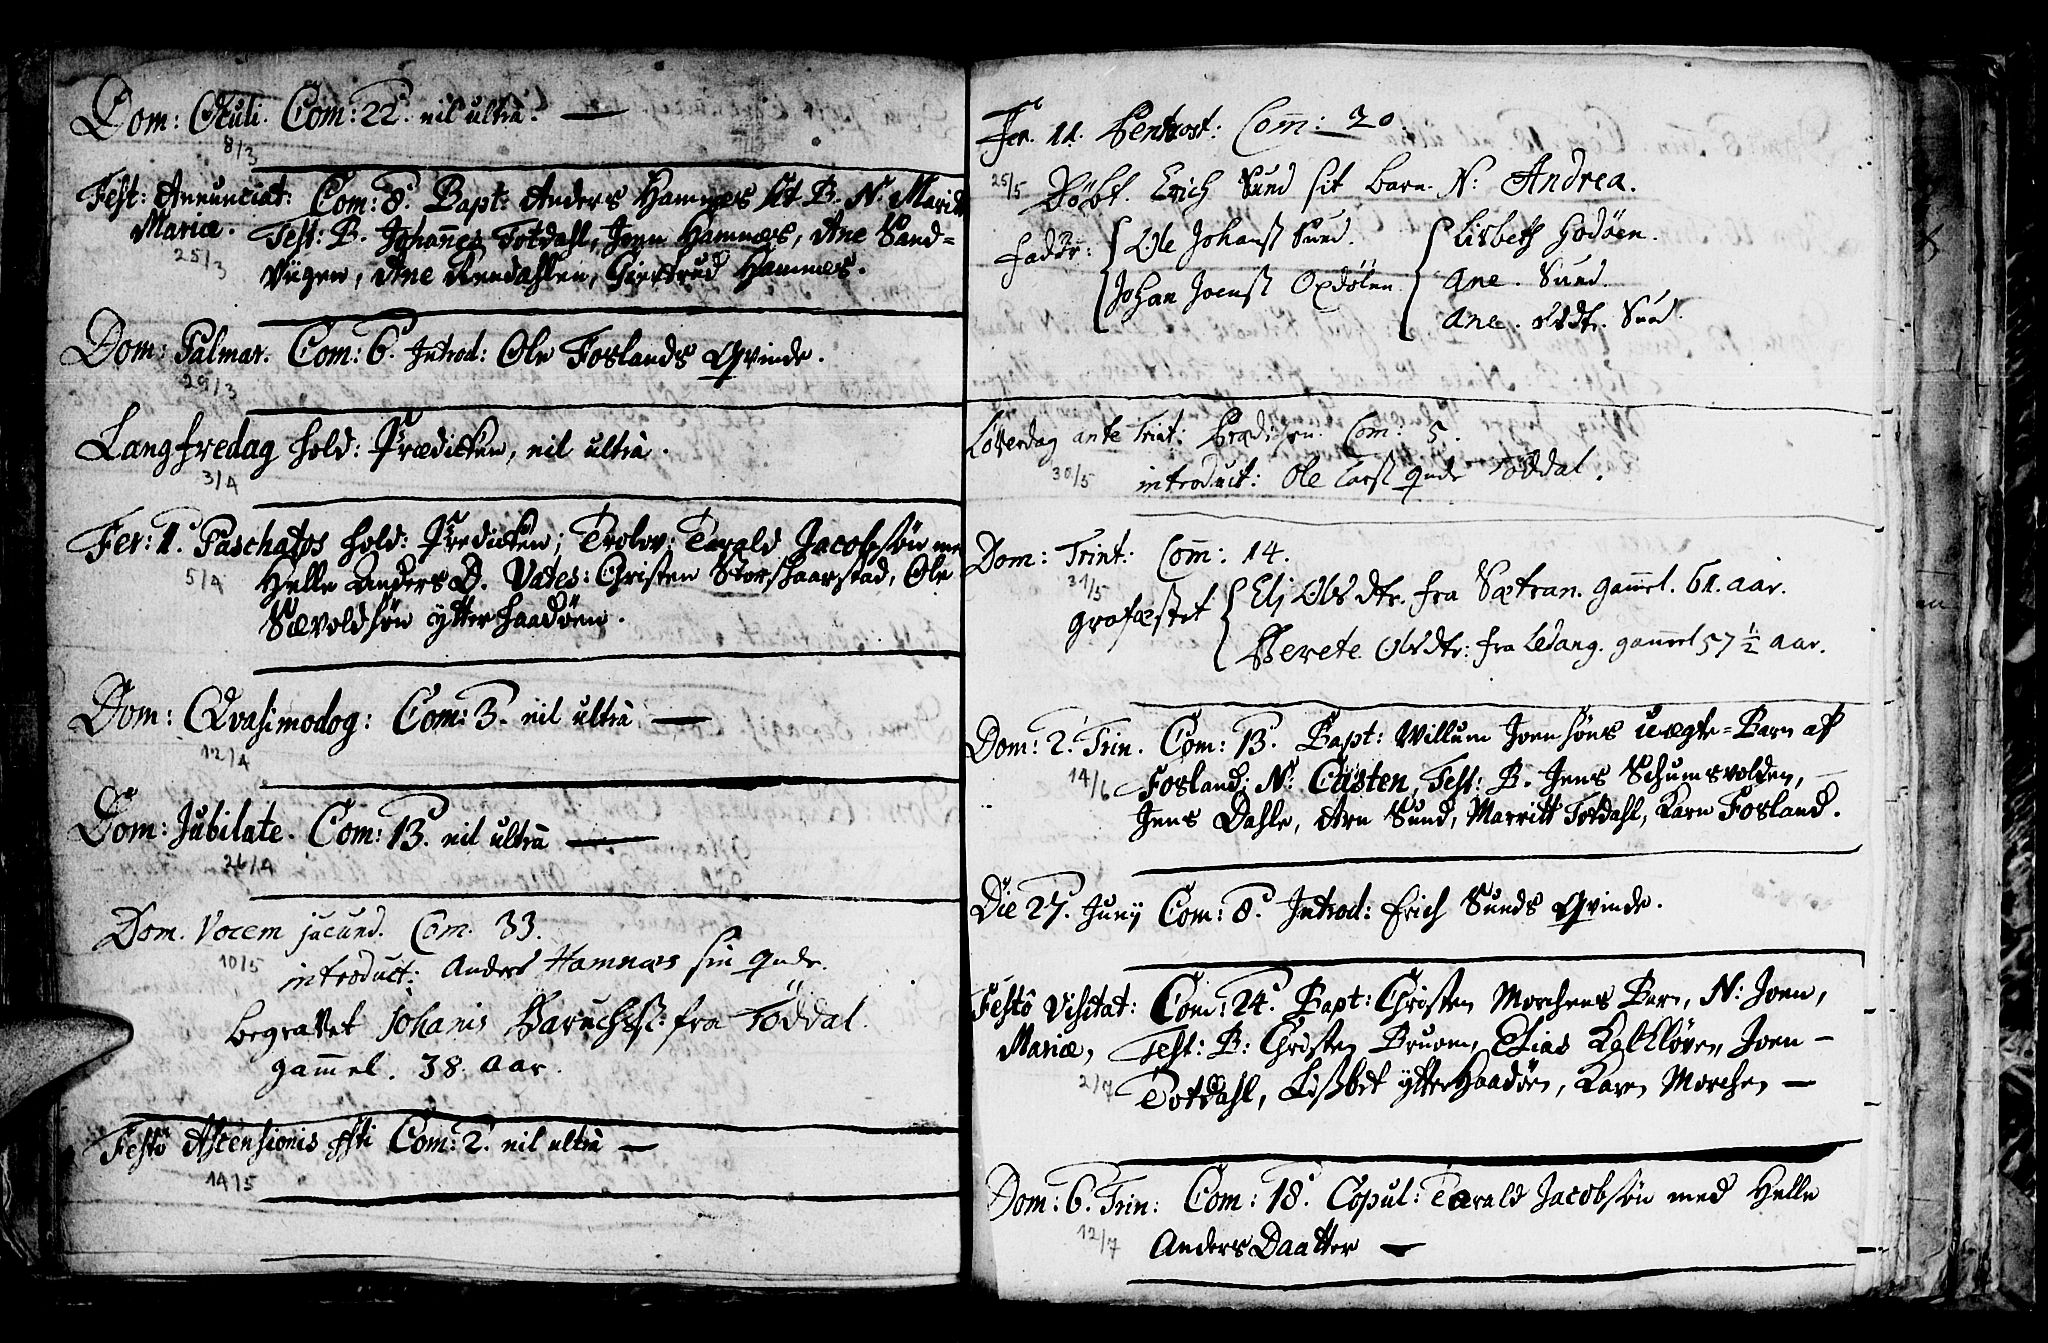 Dom: Oculi. Com: 22. nil ultra. —
8/3
Fest: Annunciat: Com: 8. Bapt: Anders Hamnes B. N. Marit
Mariæ. Test: B. Johannes Totdahl, Joen Hamnæs, Ane Sand=
25/3
viigen, Ane Rendahlen, Giertrud Hamnes.
Dom: Palmar. Com: 6. Introd: Ole Foslands Qvinde.
29/3
Langfredag hold: Prædicken, nil ultra.
3/4
Fer: 1. Paschatos hold: Predicken; Trolov: Tarald Jacobsøn me
5/4
Helle Anders D. Vades: Christen Storshaarstad, Ole
Sævoldsøn ytterhaadøen.
Dom: Qvasimodog: Com: 3. nil ultra —
12/4
Dom: Jubilate. Com: 13. nil ultra —
26/4
Dom. Vocem jucund. Com. 33.
10/5
introduct: Anders Hamnæs sin qnde.
begravet Johanis fra Toddal.
gammel. 38. aar.
Festo Ascensionis Com: 2. nil ultra —
14/5
Fer. 11. Pentecost: Com: 20
25/5
Døbt. Erich Sund sit barn. N: Andrea.
fadde: Ole Johans Sund. Lisbeth Hodøen.
Johan Joens Oxdølen. Ane. Sund.
Ane. Olsdtr. Sund.
Løverdag ante Trint: Prædichen. Com: 5.
30/5
introduct: Ole Lars qnde Toddal.
Dom: Trint: Com: 14.
31/5
grafæstet Eli Ols dtr. fra Sætran. gammel. 61. aar.
Berete Olsdtr: fra Ledang. gammel 57 1/2 aar.
Dom: 2. Trin. Com: 13. Bapt: Willum Joensøns uægte=Barn af
14/6
Fosland; N: Casten, Test: B. Jens Schumsvolden,
Jens Dahle, Arn Sund, Marritt Totdahl, Karn Fosland.
Die 27. Junij Com: 8. Introd: Erich Sunds Qvinde.
Festo Visitat: Com: 24. Bapt: Christen Morchens Barn, N: Joen,
Mariæ, Test: B: Christen Bruom, Elias Kalkløven, Joen —
2/7
Totdahl, Lisbet ytterHaadøen, Karn Morchen —
Dom: 6. Trin: Com: 18. Copul: Tarald Jacobsøn med Helle
12/7
Anders Daatter —